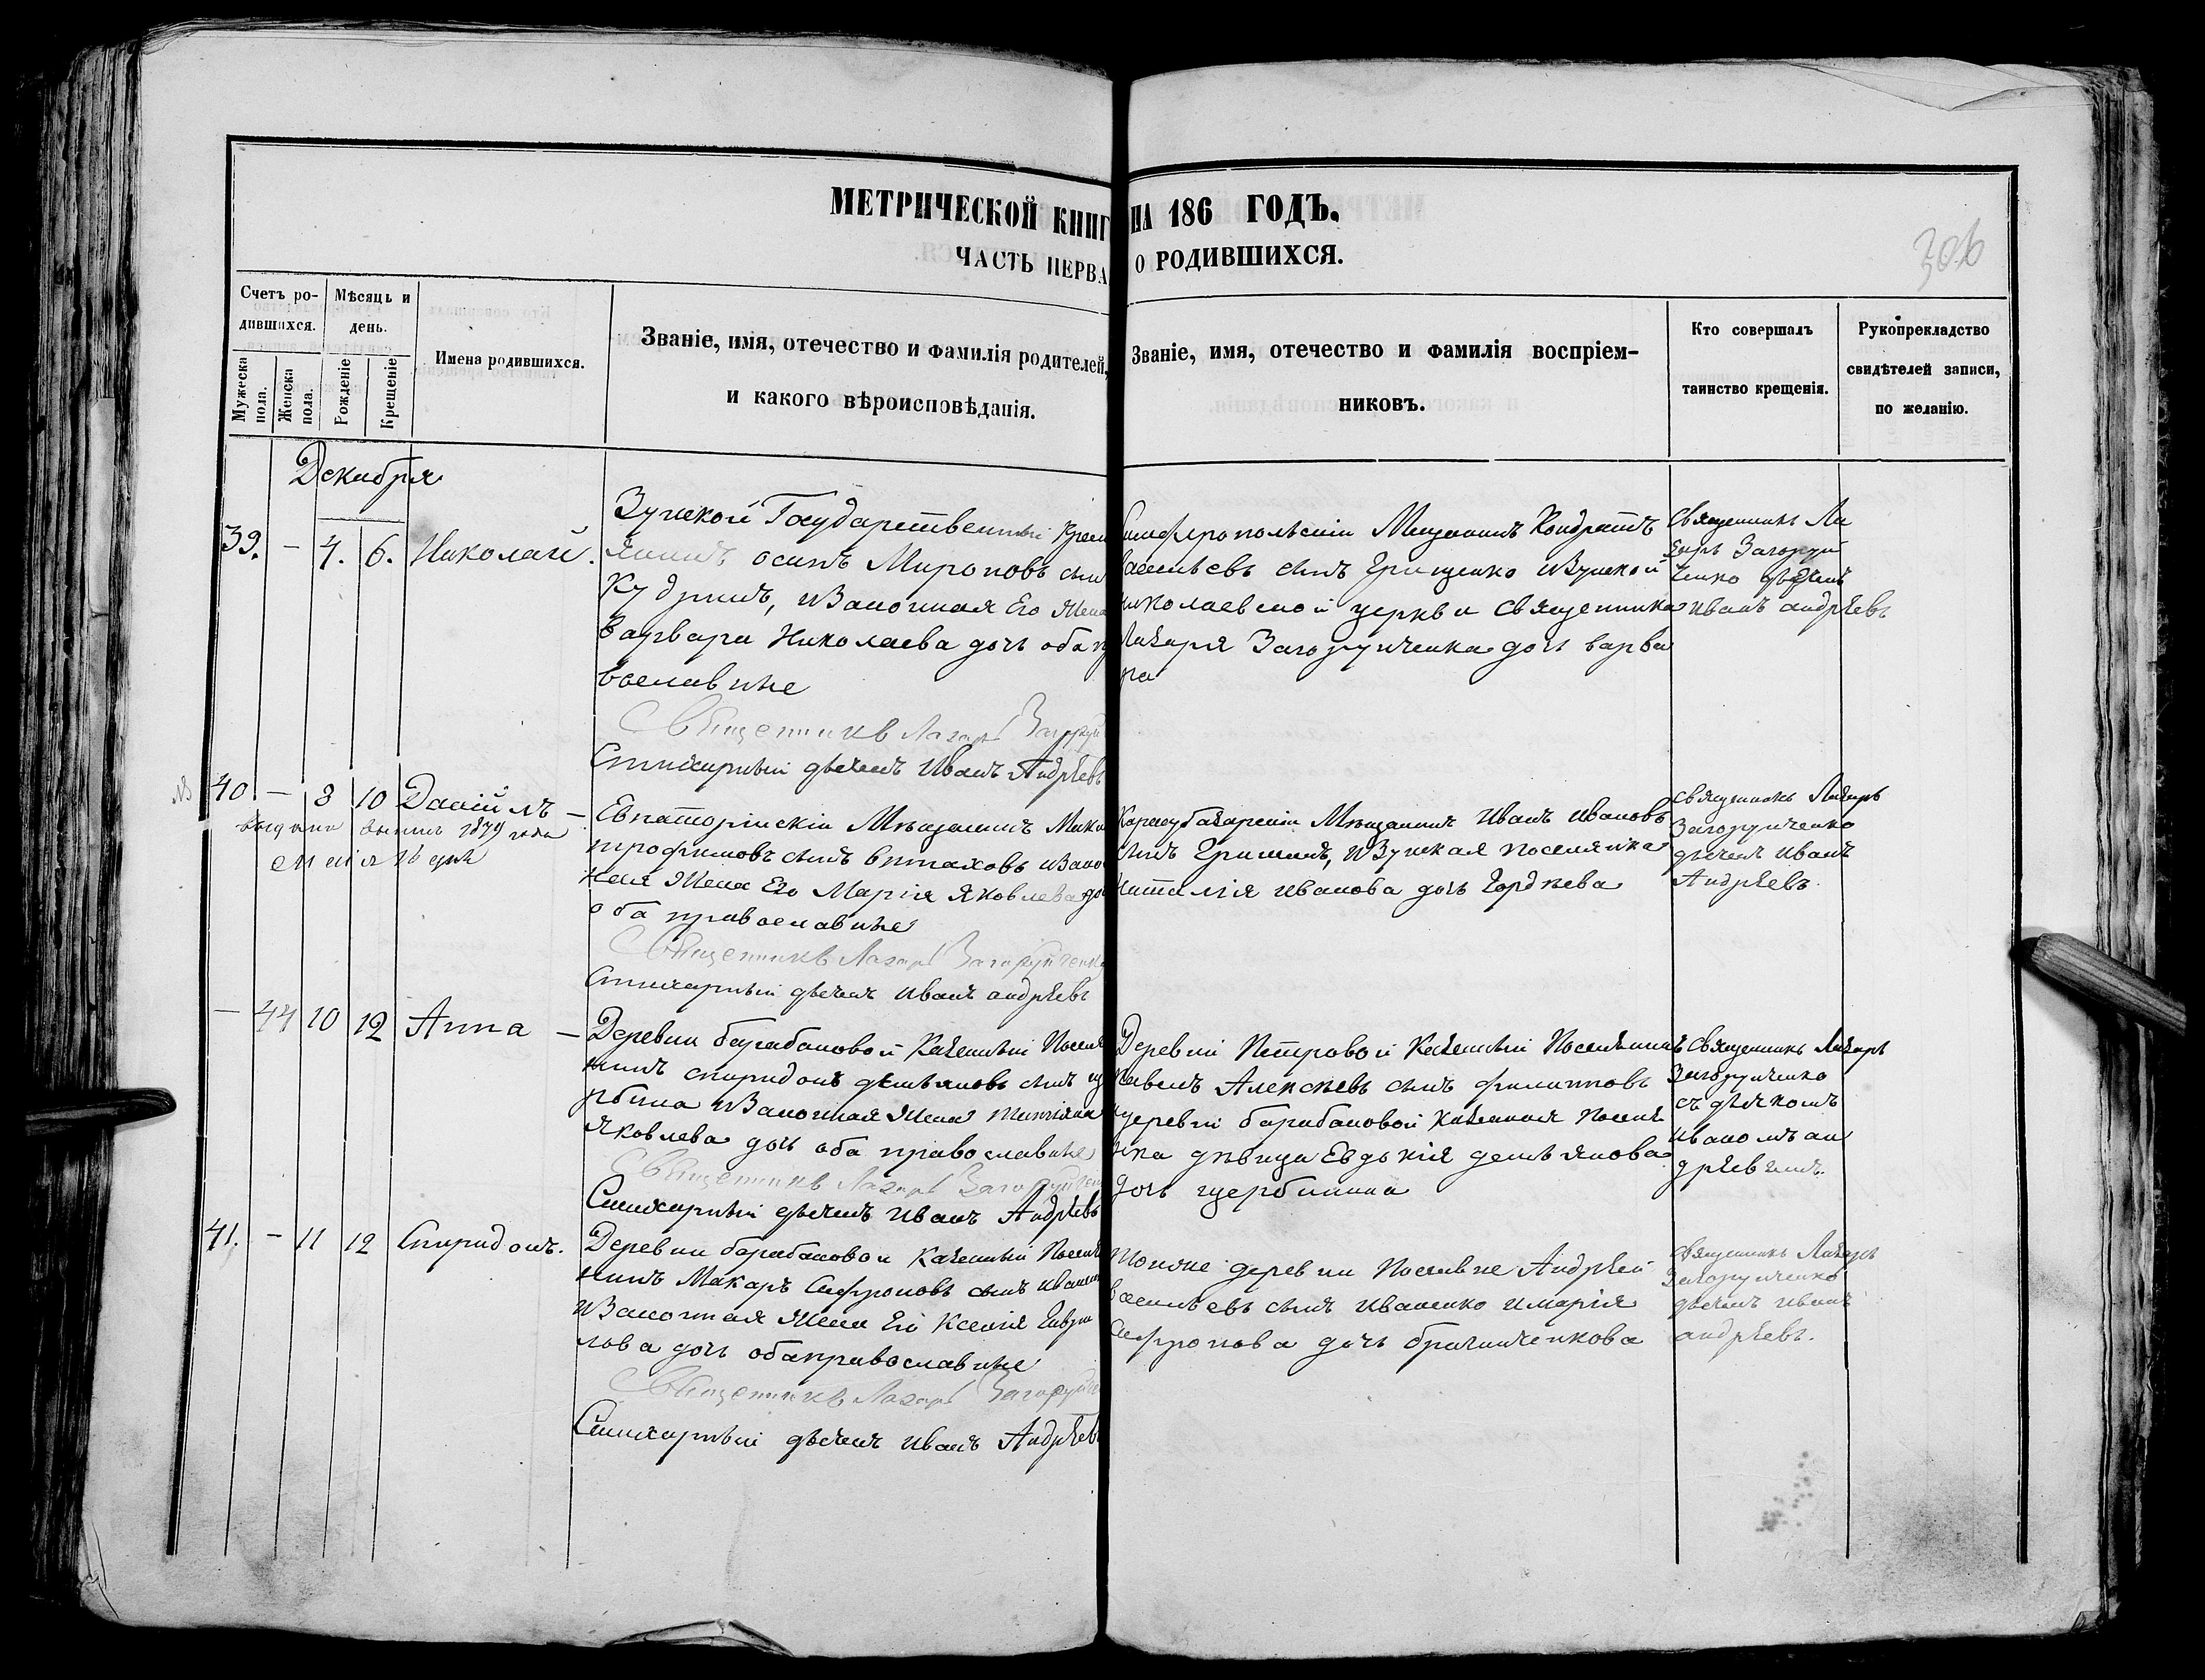 МЕТРИЧЕСКОЙ КНИГ НА 186 ГОДЪ.
ЧАСТЬ ПЕРВА О РОДИВШИХСЯ.
306
Счетъ родившихся.
Мужеска пола.
Женска пола.
Мѣсяцъ и день.
Рожденіе
Крещеніе
Имена родившихся.
Званіе, имя, отечество и фамилія родителей,
и какого вѣроисповѣданія.
Званіе, имя, отечество и фамилія воспріем-
никовъ.
Кто совершалъ
таинство крещенія.
Рукоприкладство
свидѣтелей записи,
по желанію.
Декабря
39. — 4. 6. Николай.
Зуйской Государственный Кресть
янинъ осипъ Мироновъ сынъ
Кудринъ, изаконная Его Жена
Варвара Николаева дочь оба пра
вославные
Священникъ Лазарь Загоруй
Стихарный дьячекъ Иванъ Андрѣевъ
Симферопольскій Мещанинъ Кондратъ
Васильевъ сынъ Грищенко иЗуйской
николаевской церкви Священника
Лазаря Загоруйченка дочь варва
ра
Священникъ Ла
зарь Загоруй
ченко дьячекъ
иванъ андрѣевъ
40. — 8 10 Даніилъ —
выдана 1879 года
Евпаторійскій Мѣщанинъ
трофимовъ сынъ изакон
ная Жена Его Марія Яковлева до
оба православные
Священникъ Лазарь Загоруйченко
Стихарный дьячекъ Иванъ андрѣевъ
Карасубазарскій Мѣщанинъ Иванъ Ивановъ
сынъ Гришинъ, иЗуйская поселянка
Наталія иванова дочь Гордѣева
Священникъ Лазарь
Загоруйченко
дьячекъ Иванъ
Андрѣевъ.
— 44 10 12 Анна —
Деревни барабановой Казенный Посел
нинъ спиридонъ демьяновъ сынъ
рбина изаконная Жена
Яковлева дочь оба православные
Священникъ Лазарь Загоруйчен
Стихарный дьячекъ Иванъ Андрѣевъ
Деревни Петровой Казенный Поселянинъ
Павелъ Алексѣевъ сынъ филиповъ
деревни барабановой Казенная Посел
нка дѣвица Евдокія демьянова
дочь щербинина
Священникъ Лазарь
Загоруйченко
съ дьякомъ
иваномъ ан
дрѣевымъ.
41. — 11 12 Спиридонъ.
Деревни барабановой Казенный Посел
нинъ Макаръ Сафроновъ сынъ
иЗаконная Жена Его Ксенія Гаври
лова дочь обаправославные
Священникъ Лазарь Загоруйче
Стихарный дьячекъ Иванъ Андрѣевъ
Тойже деревни Поселяне Андрѣй
Васильевъ сынъ Иваненко имарія
Сафронова дочь
Священникъ Лазарь
Загоруйченко
дьячекъ иванъ
андрѣевъ.